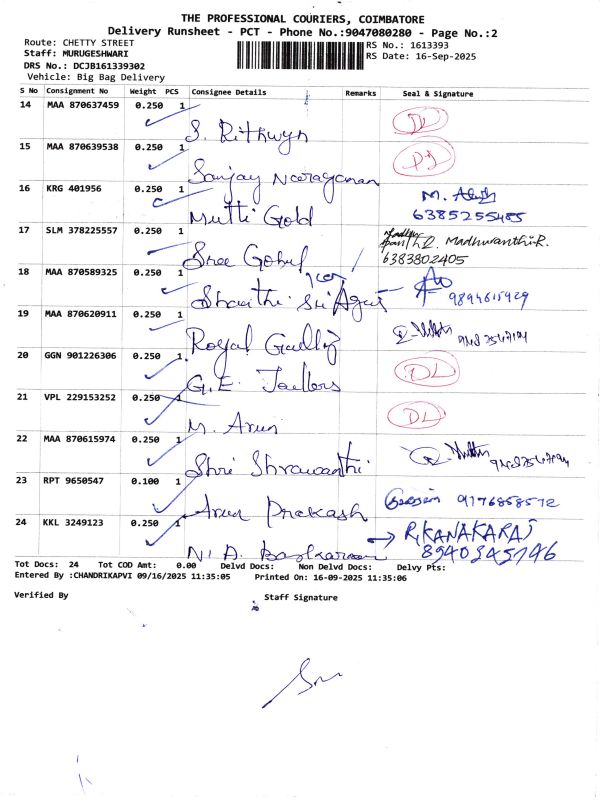 THE PROFESSIONAL COURIERS, COIMBATORE
Delivery Runsheet - PCT - Phone No.:9047080280 - Page No.:2
Route: CHETTY STREET RS No.: 1613393
Staff: MURUGESHWARI RS Date: 16-Sep-2025
DRS No.: DCJB161339302
Vehicle: Big Bag Delivery
S No Consignment No Weight PCS Consignee Details Remarks Seal & Signature
14 MAA 870637459 0.250 1 S. Rithwyn DL
15 MAA 870639538 0.250 1 Sanjay Narayanan DL
16 KRG 401956 0.250 1 Mutti Gold M.
6385255485
17 SLM 378225557 0.250 1 Sree Gokul Madhuvanthi.R.
6383802405
18 MAA 870589325 0.250 1 Shanthi Sri
9894615929
19 MAA 870620911 0.250 1 Royal
20 GGN 901226306 0.250 1 G.E. Tailors DL
21 VPL 229153252 0.250 1 M. Arun DL
22 MAA 870615974 0.250 1 Shri Shrawanthi
23 RPT 9650547 0.100 1 Arun Prakash 9176858572
24 KKL 3249123 0.250 1 N. A. Baskaran R. KANAKARAJ
8940345746
Tot Docs: 24 Tot COD Amt: 0.00 Delvd Docs: Non Delvd Docs: Delvy Pts:
Entered By :CHANDRIKAPVI 09/16/2025 11:35:05 Printed On: 16-09-2025 11:35:06
Verified By Staff Signature